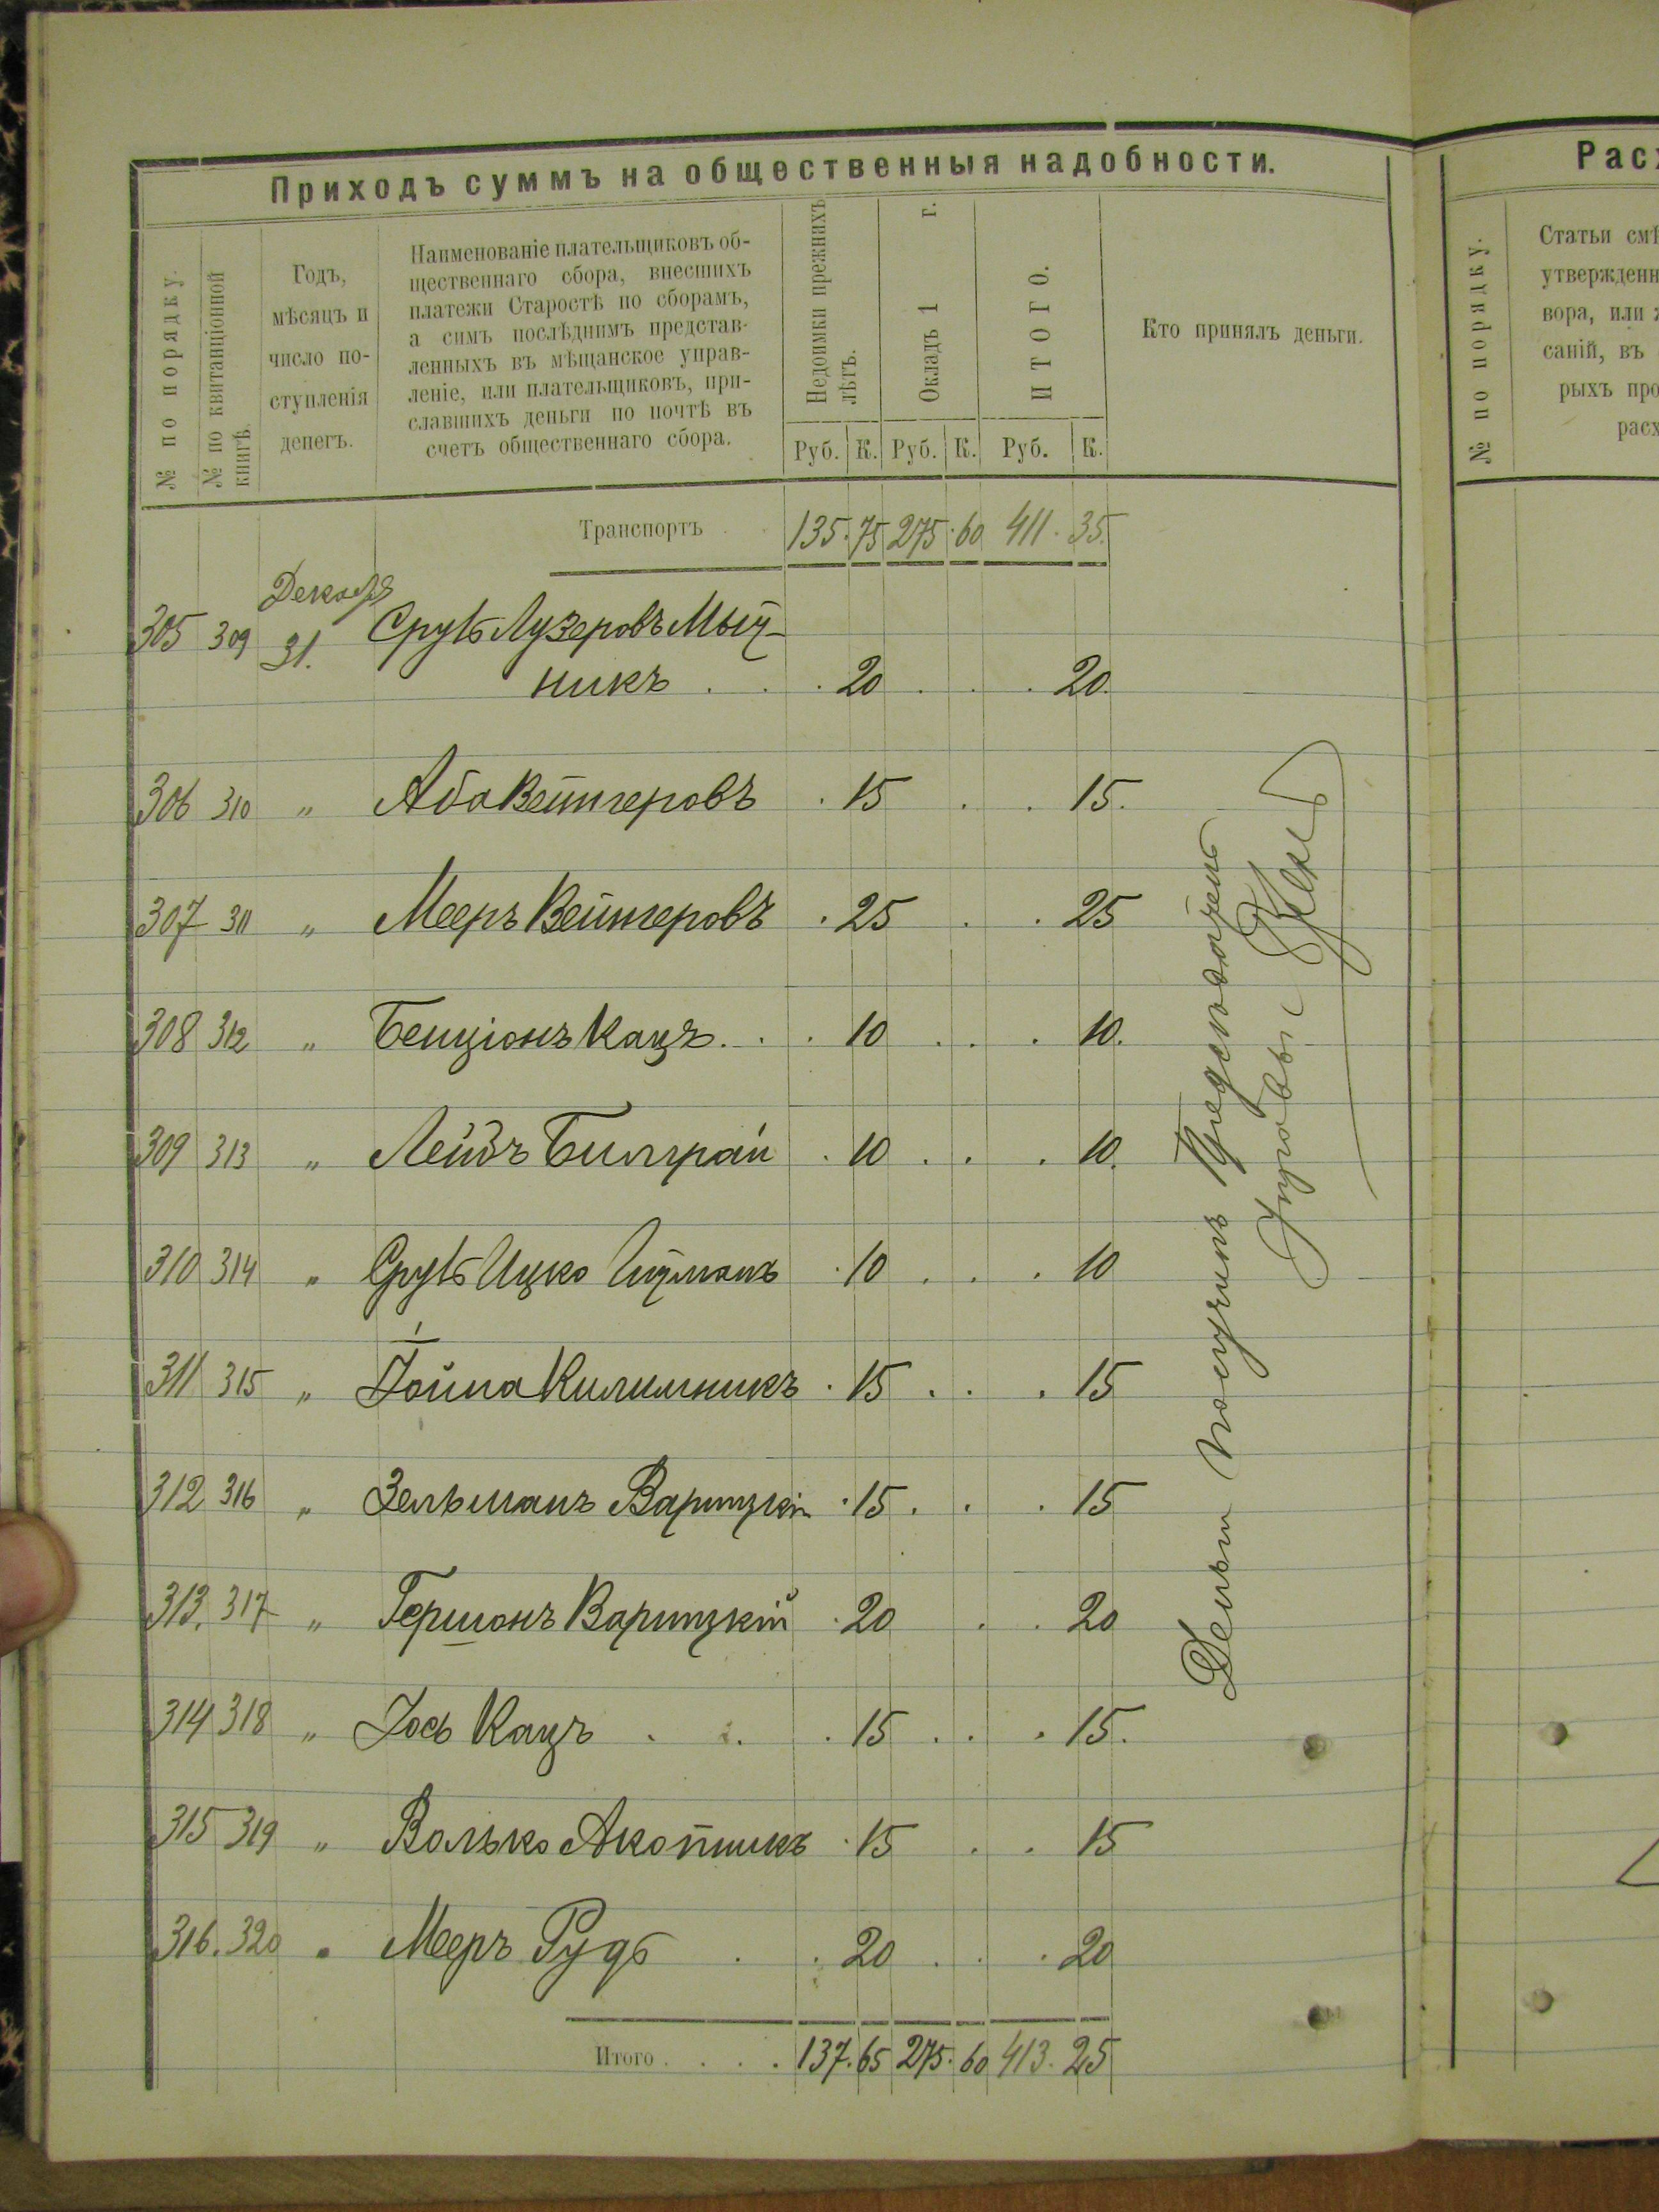 Приходъ суммъ на общественныя надобности.
№ по порядку.
№ по квитанціонной
книгѣ.
Годъ,
мѣсяцъ и
число по-
ступленія
денегъ.
Наименованіе плательщиковъ об-
щественнаго сбора, внесшихъ
платежи Старостѣ по сборамъ,
а симъ послѣднимъ представ-
ленныхъ въ мѣщанское управ-
леніе, или плательщиковъ, при-
славшихъ деньги по почтѣ въ
счетъ общественнаго сбора.
Недоимки прежнихъ
лѣтъ.
Окладъ 1 г.
ИТОГО.
Руб. К. Руб. К. Руб. К.
Кто принялъ деньги.
Транспортъ 135. 75 275. 60 411. 35.
Декабря
305 309 31. Сруль Лузеровъ Мыч-
никъ . . . 20 . . . 20.
306 310 „ Аба Вейнеровъ . 15 . . 15.
307 311 „ Мееръ Вейнеровъ . 25 . . 25
308 312 „ Бенціонъ Кацъ . . . 10 . . . 10.
309 313 „ Лейзъ Билграй . 10 . . . 10.
310 314 „ Сруль Ицко . 10 . . . 10
311 315 „ Іойна Килимникъ . 15 . . . 15
312 316 „ Зельманъ Варницкій . 15 . . . 15
313. 317 „ Гершонъ Варницкій . 20 . . 20
314 318 „ Іось Кацъ . . . 15 . . . 15.
315 319 „ Волько Акопникъ . 15 . . 15
316. 320 „ Мееръ Рудь . . 20 . . . 20
Итого . . . . 137. 65 275. 60 413. 25
Деньги получилъ Предсѣдатель
Управы
Расх
№ по порядку.
Статьи смѣ
утвержденн
вора, или ж
саній, въ
рыхъ про
расх